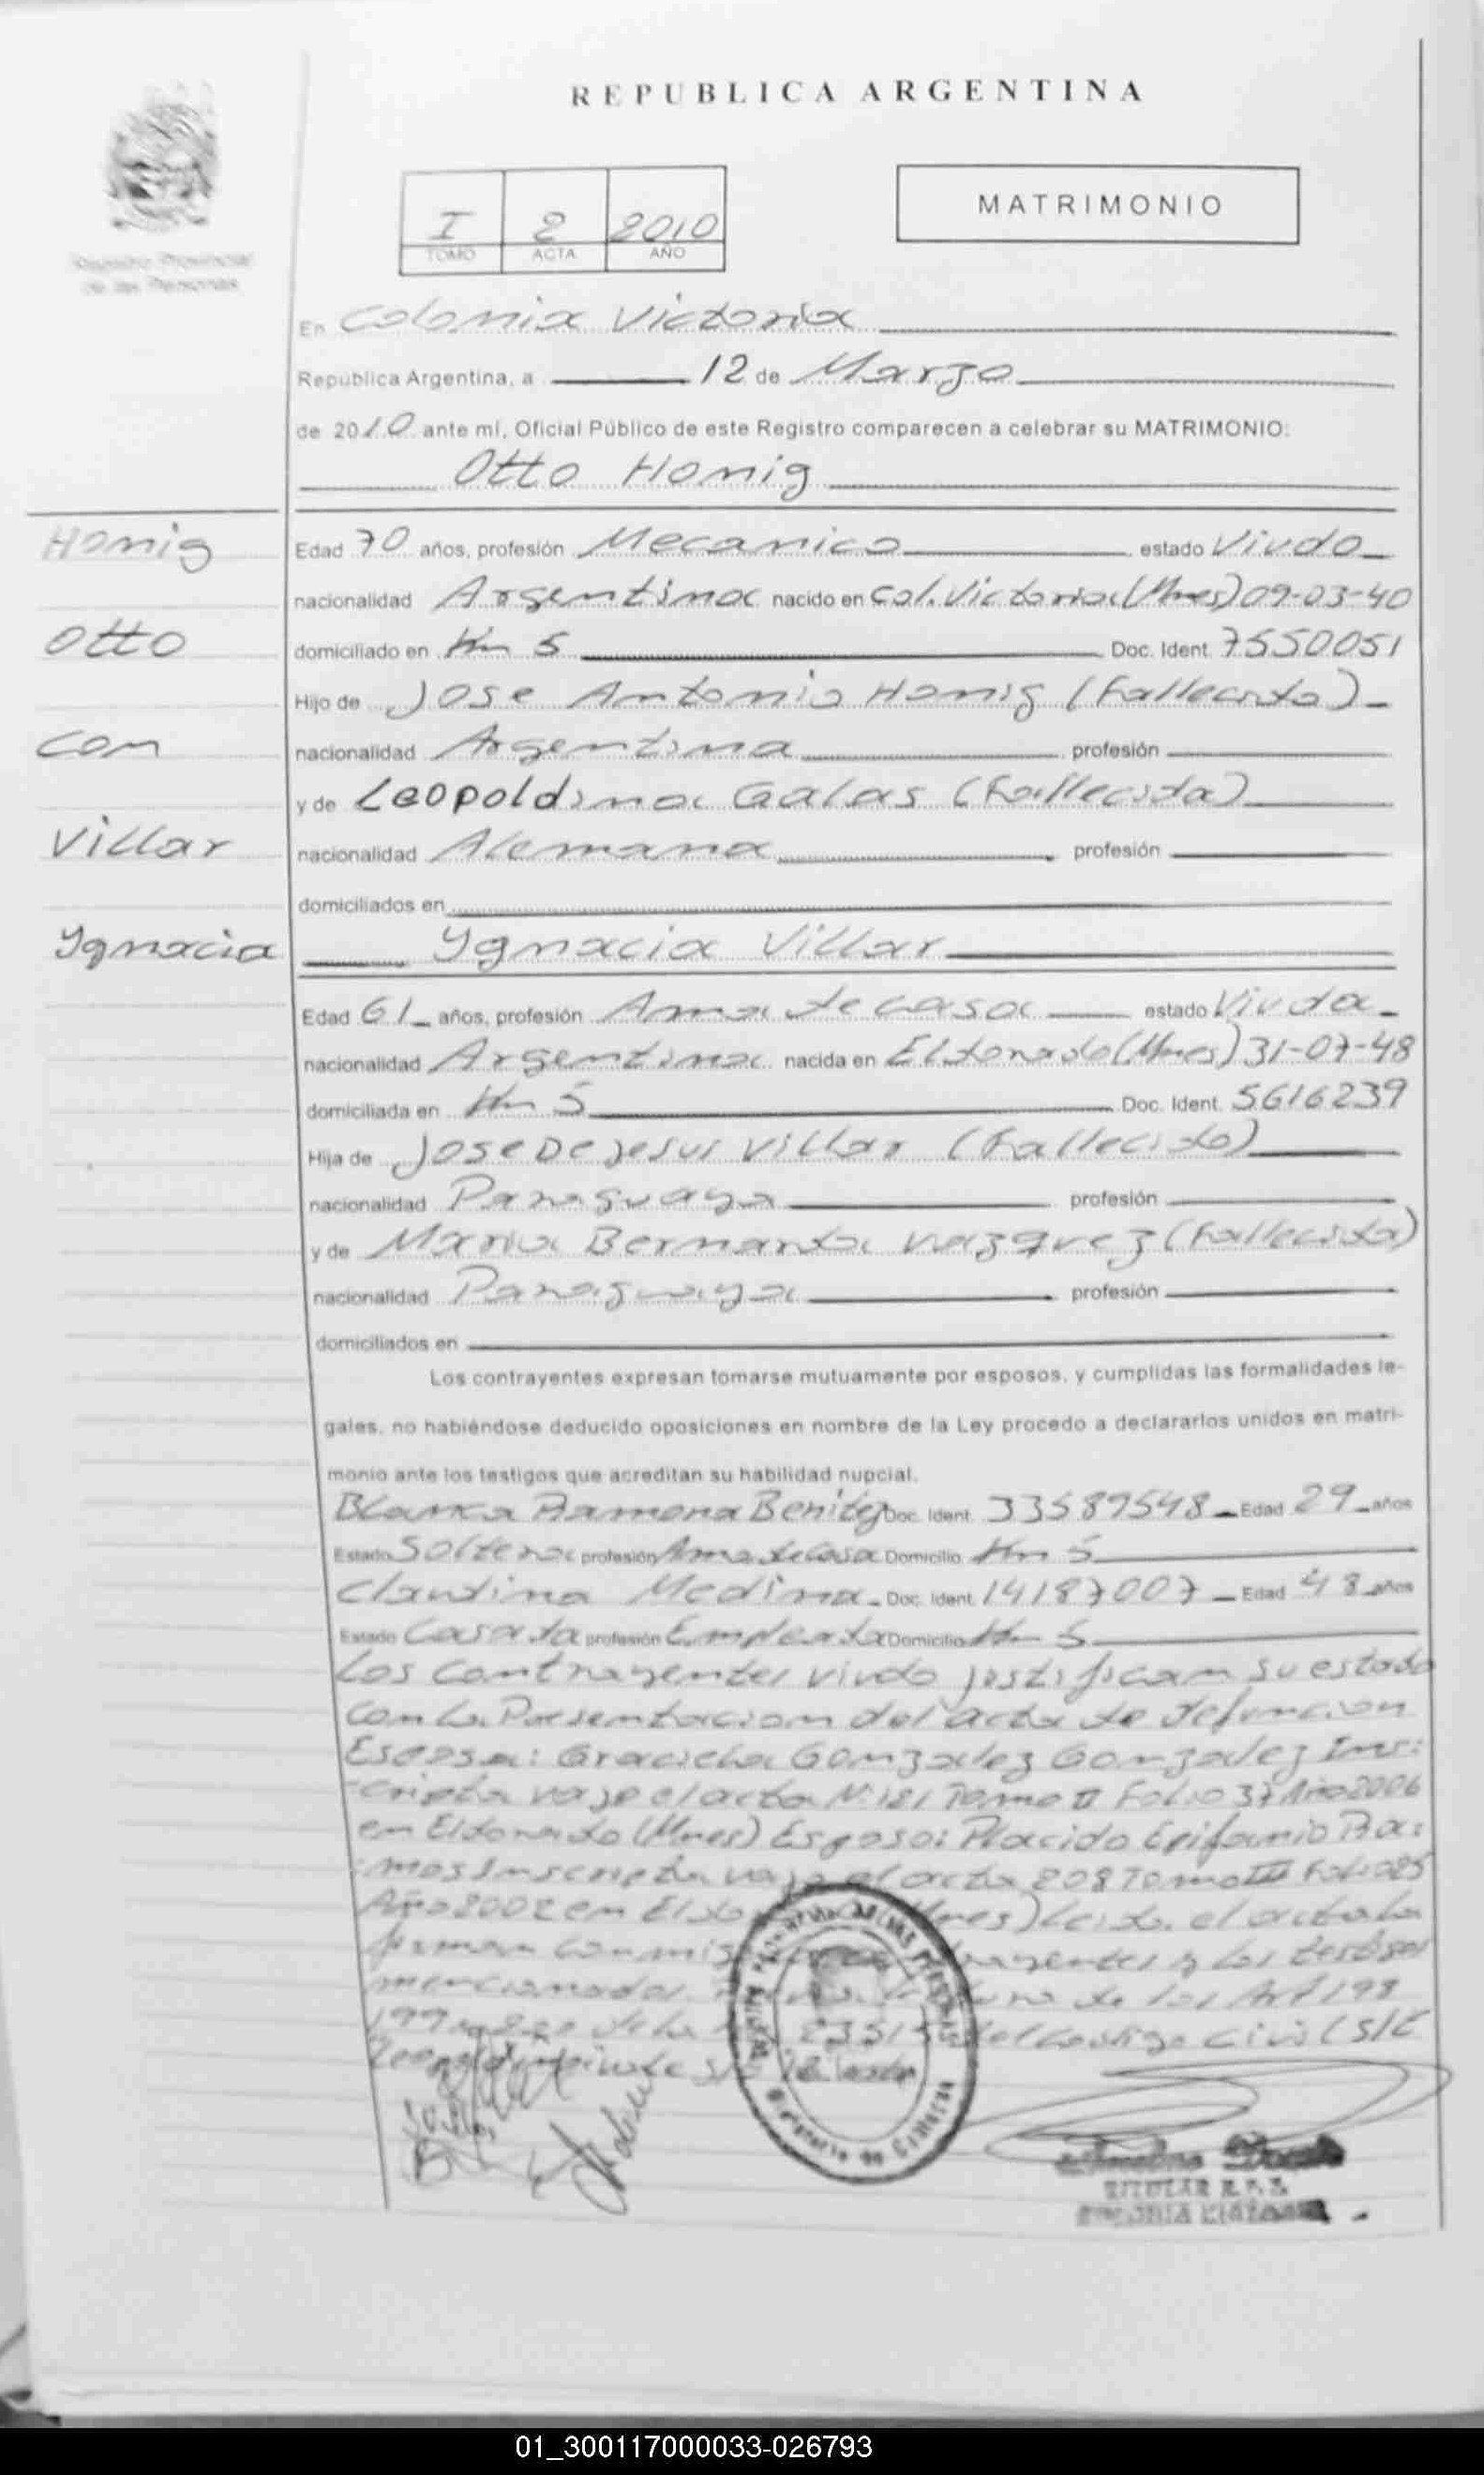 REPUBLICA ARGENTINA
Registro Provincial
de las Personas
I 2 2010
TOMO ACTA AÑO
MATRIMONIO
En Colonia Victoria
República Argentina, a 12 de Marzo
de 2010 ante mí, Oficial Público de este Registro comparecen a celebrar su MATRIMONIO:
Otto Honig
Honig
Otto
con
Villar
Ygnacia
Edad 70 años, profesión Mecanico estado Viudo
nacionalidad Argentina nacido en Col. Victoria (Mnes) 09-03-40
domiciliado en Km 5 Doc. Ident. 7550051
Hijo de Jose Antonio Honig (Fallecido)
nacionalidad Argentina profesión
y de Leopoldina Galas (Fallecida)
nacionalidad Alemana profesión
domiciliados en
Ygnacia Villar
Edad 61 años, profesión Ama de casa estado Viuda
nacionalidad Argentina nacida en Eldorado (Mnes) 31-07-48
domiciliada en Km 5 Doc. Ident. 5616239
Hija de Jose De Jesus Villar (Fallecido)
nacionalidad Paraguaya profesión
y de Maria Bernarda Vazquez (Fallecida)
nacionalidad Paraguaya profesión
domiciliados en
Los contrayentes expresan tomarse mutuamente por esposos, y cumplidas las formalidades le-
gales, no habiéndose deducido oposiciones en nombre de la Ley procedo a declararlos unidos en matri-
monio ante los testigos que acreditan su habilidad nupcial.
Blanca Ramona Benitez Doc. Ident. 33587548 Edad 29 años
Estado Soltera profesión Ama de Casa Domicilio Km 5
Claudina Medina Doc. Ident. 14187007 Edad 48 años
Estado Casada profesión Empleada Domicilio Km 5
Los Contrayentes viudo justifican su estado
con la Presentacion del acta de defuncion
Esposa: Graciela Gonzalez Gonzalez Ins:
cripta vajo el acta N: 181 Tomo II Folio 37 Año 2006
en Eldorado (Mnes) Esposo: Placido Epifanio Ra:
mos Inscripta vajo el acta 208 Tomo III Folio 85
Año 2002 en (Mnes) Leida el acta la
firman conmigo los testigos
mencionados de los Art 198
199 del Codigo Civil S/E
TITULAR R.P.P.
COLONIA VICTORIA
01_300117000033-026793